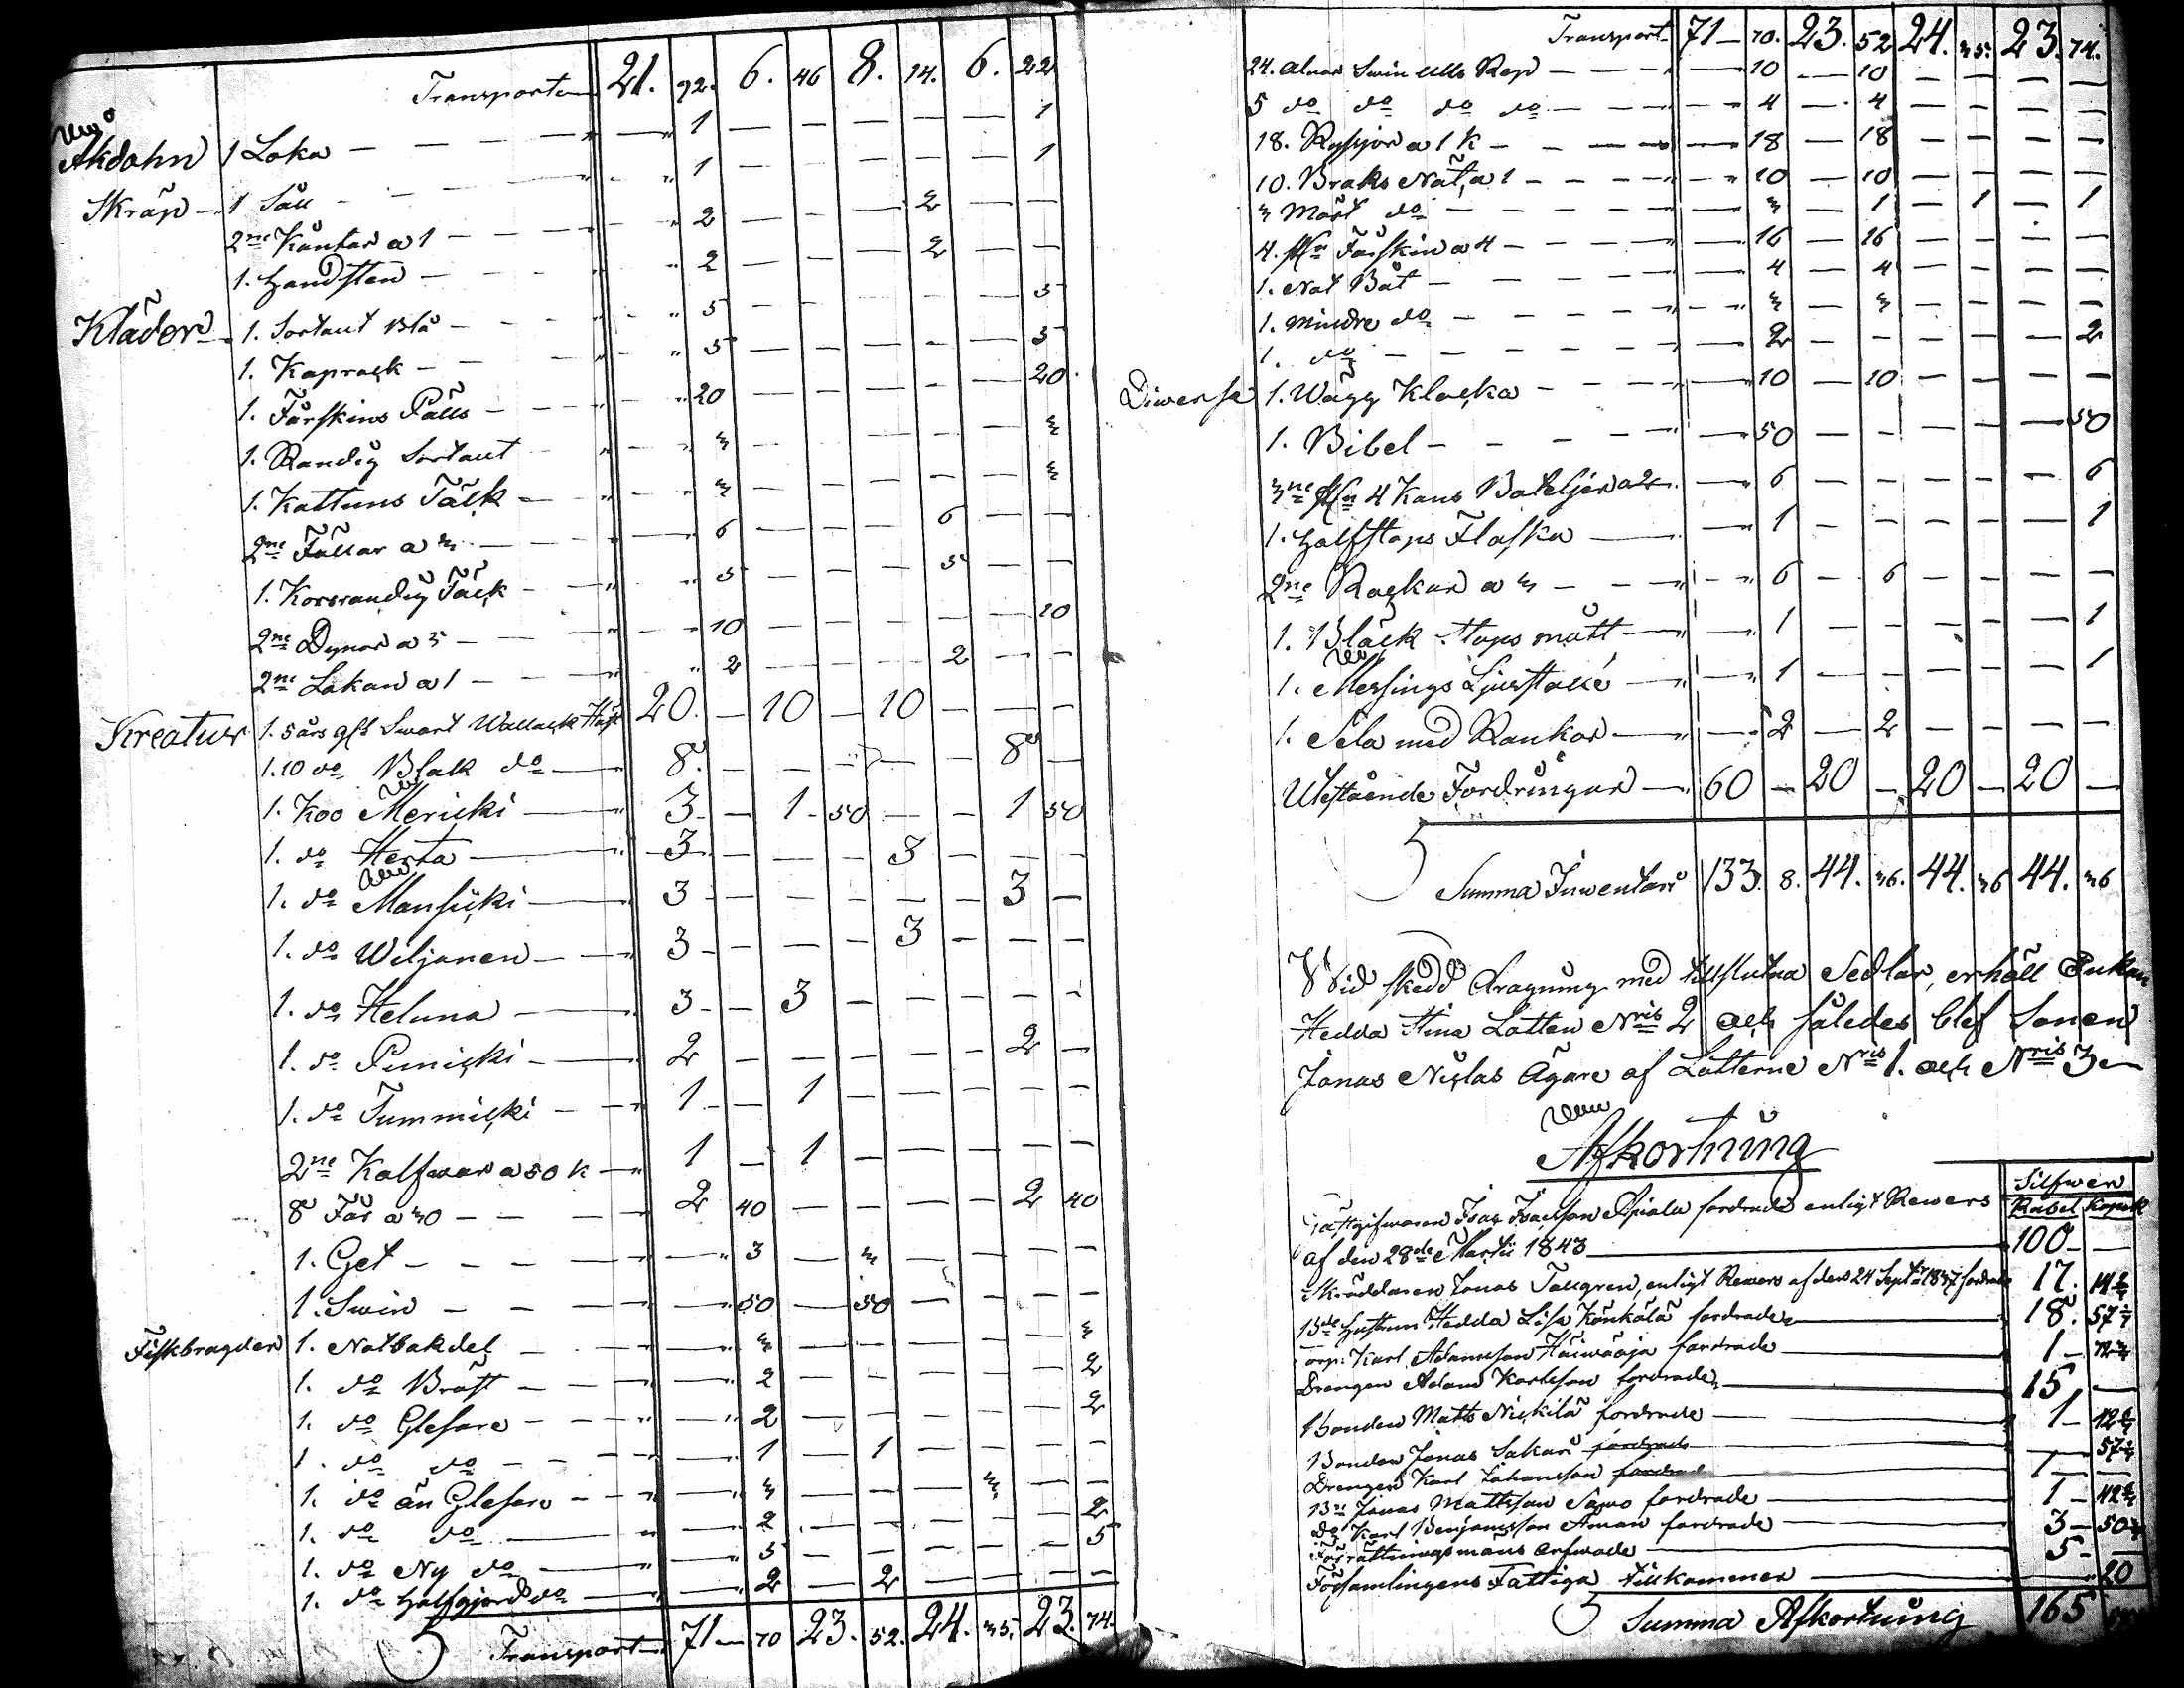 Transport 21. 92. 6. 46 8. 14. 6. 22
Åkdohn 1 Loka — 1 — 1
Skräp 1 Såll — 1 — 1
2ne Käntar a 1 — 2 — 2
1. Handsten — 2 — 2
Kläder 1. Sortaut Blå — 5 — 5
1. Kaprock — 5 — 5
1. Fårskins Fälls — 20 — 20
1. Randig Sortaut — 3 — 3
1. Kattuns Täck — 3 — 3
2ne Fällar a 3 — 6 — 6
1. Korsrandig Täck — 5 — 5
2ne Dynor a 5 — 10 — 10
2ne Lakan a 1 — 2 — 2
Kreatur 1. 5 års gl Swart Wallack Häst 20. — 10 — 10
1. 10 do Blak do — 8. — 8
1. Koo Mericki — 3 — 1 50 — 1 50
1. do Herta — 3 — 3
1. do Mansicki — 3 — 3
1. do Wiljanen — 3 — 3
1. do Heluna — 3 — 3
1. do Punicki — 2 — 2
1. do Tummicki — 1 — 1
2ne Kalfwar a 50 k — 1 — 1
8 Får a 30 — 2 40 — 2 40
1. Get — 3 — 3
1. Swin — 50 — 50
Fiskbragder 1. Notbakdel — 3 — 3
1. do Bröst — 2 — 2
1. do Glesare — 2 — 2
1. do do — 1 — 1
1. do än Glesare — 3 — 3
1. do do — 2 — 2
1. do Ny do — 5 — 5
1. do Halfgjord do — 2 — 2
Transport 71 — 70 23. 52. 24. 35. 23. 74.
Transport 71 — 70. 23. 52 24. 35. 23. 74.
24. alnar Swin Ulls Rep — 10 — 10
5 do do do do — 4 — 4
18. Rysjor a 1 k — 18 — 18
10. Braks Nät, a 1 — 10 — 10
3 Mört do — 3 — 1 — 1 — 1
4. st Fårskin a 4 — 16 — 16
1. Not Båt — 4 — 4
1. Mindre do — 3 — 3
1. do — 2 — 2
Diwerse 1. Wägg Klocka — 10 — 10
1. Bibel — 50 — 50
3ne st 4 Kans Bateljer a 2 — 6 — 6
1. Halfstops Flaska — 1 — 1
2ne Rackar a 3 — 6 — 6
1. Bläck Stops mått — 1 — 1
1. Messings Ljusstake — 1 — 1
1. Sela med Rankor — 2 — 2
Utestående Fordringar — 60 — 20 — 20 — 20 —
Summa Inwentari 133. 8. 44. 36. 44. 36 44. 36
Wid skedd dragning med tillslutna Sedlar, erhåll Enkan
Hedda Stina Lotten Nris 2 och således blef Sonen
Jonas Niclas Ägare af Lotterne Nris 1. och Nris 3
Afkortning
Silfwer
Rubel Kopek
Gästgifwaren Isac Isacsson Apiala fordrade enligt Rewers
af den 28de Martii 1843 — 100 —
Skräddaren Jonas Tallgren, enligt Rewers af den 24 Septbr 1837 fordrade 17.
Bde Hustrun Hedda Lisa Könkälä fordrade — 18. 57
Torp: Karl Adamsson fordrade — 1 —
Drengen Adam Karlsson fordrade — 15 —
Bonden Matts Nickilä fordrade — 1 — 12
Bonden Jonas Sakari fordrade — 57
Drengen Karl Johansson fordrade 1 —
Bne Jonas Mattsson Sawo fordrade — 1 — 42
do Karl Benjamsson Åman fordrade — 3 — 50
Förrättningsmäns arfwode — 5 —
Församlingens Fattiga tillkommer — 20
Summa Afkortning 165